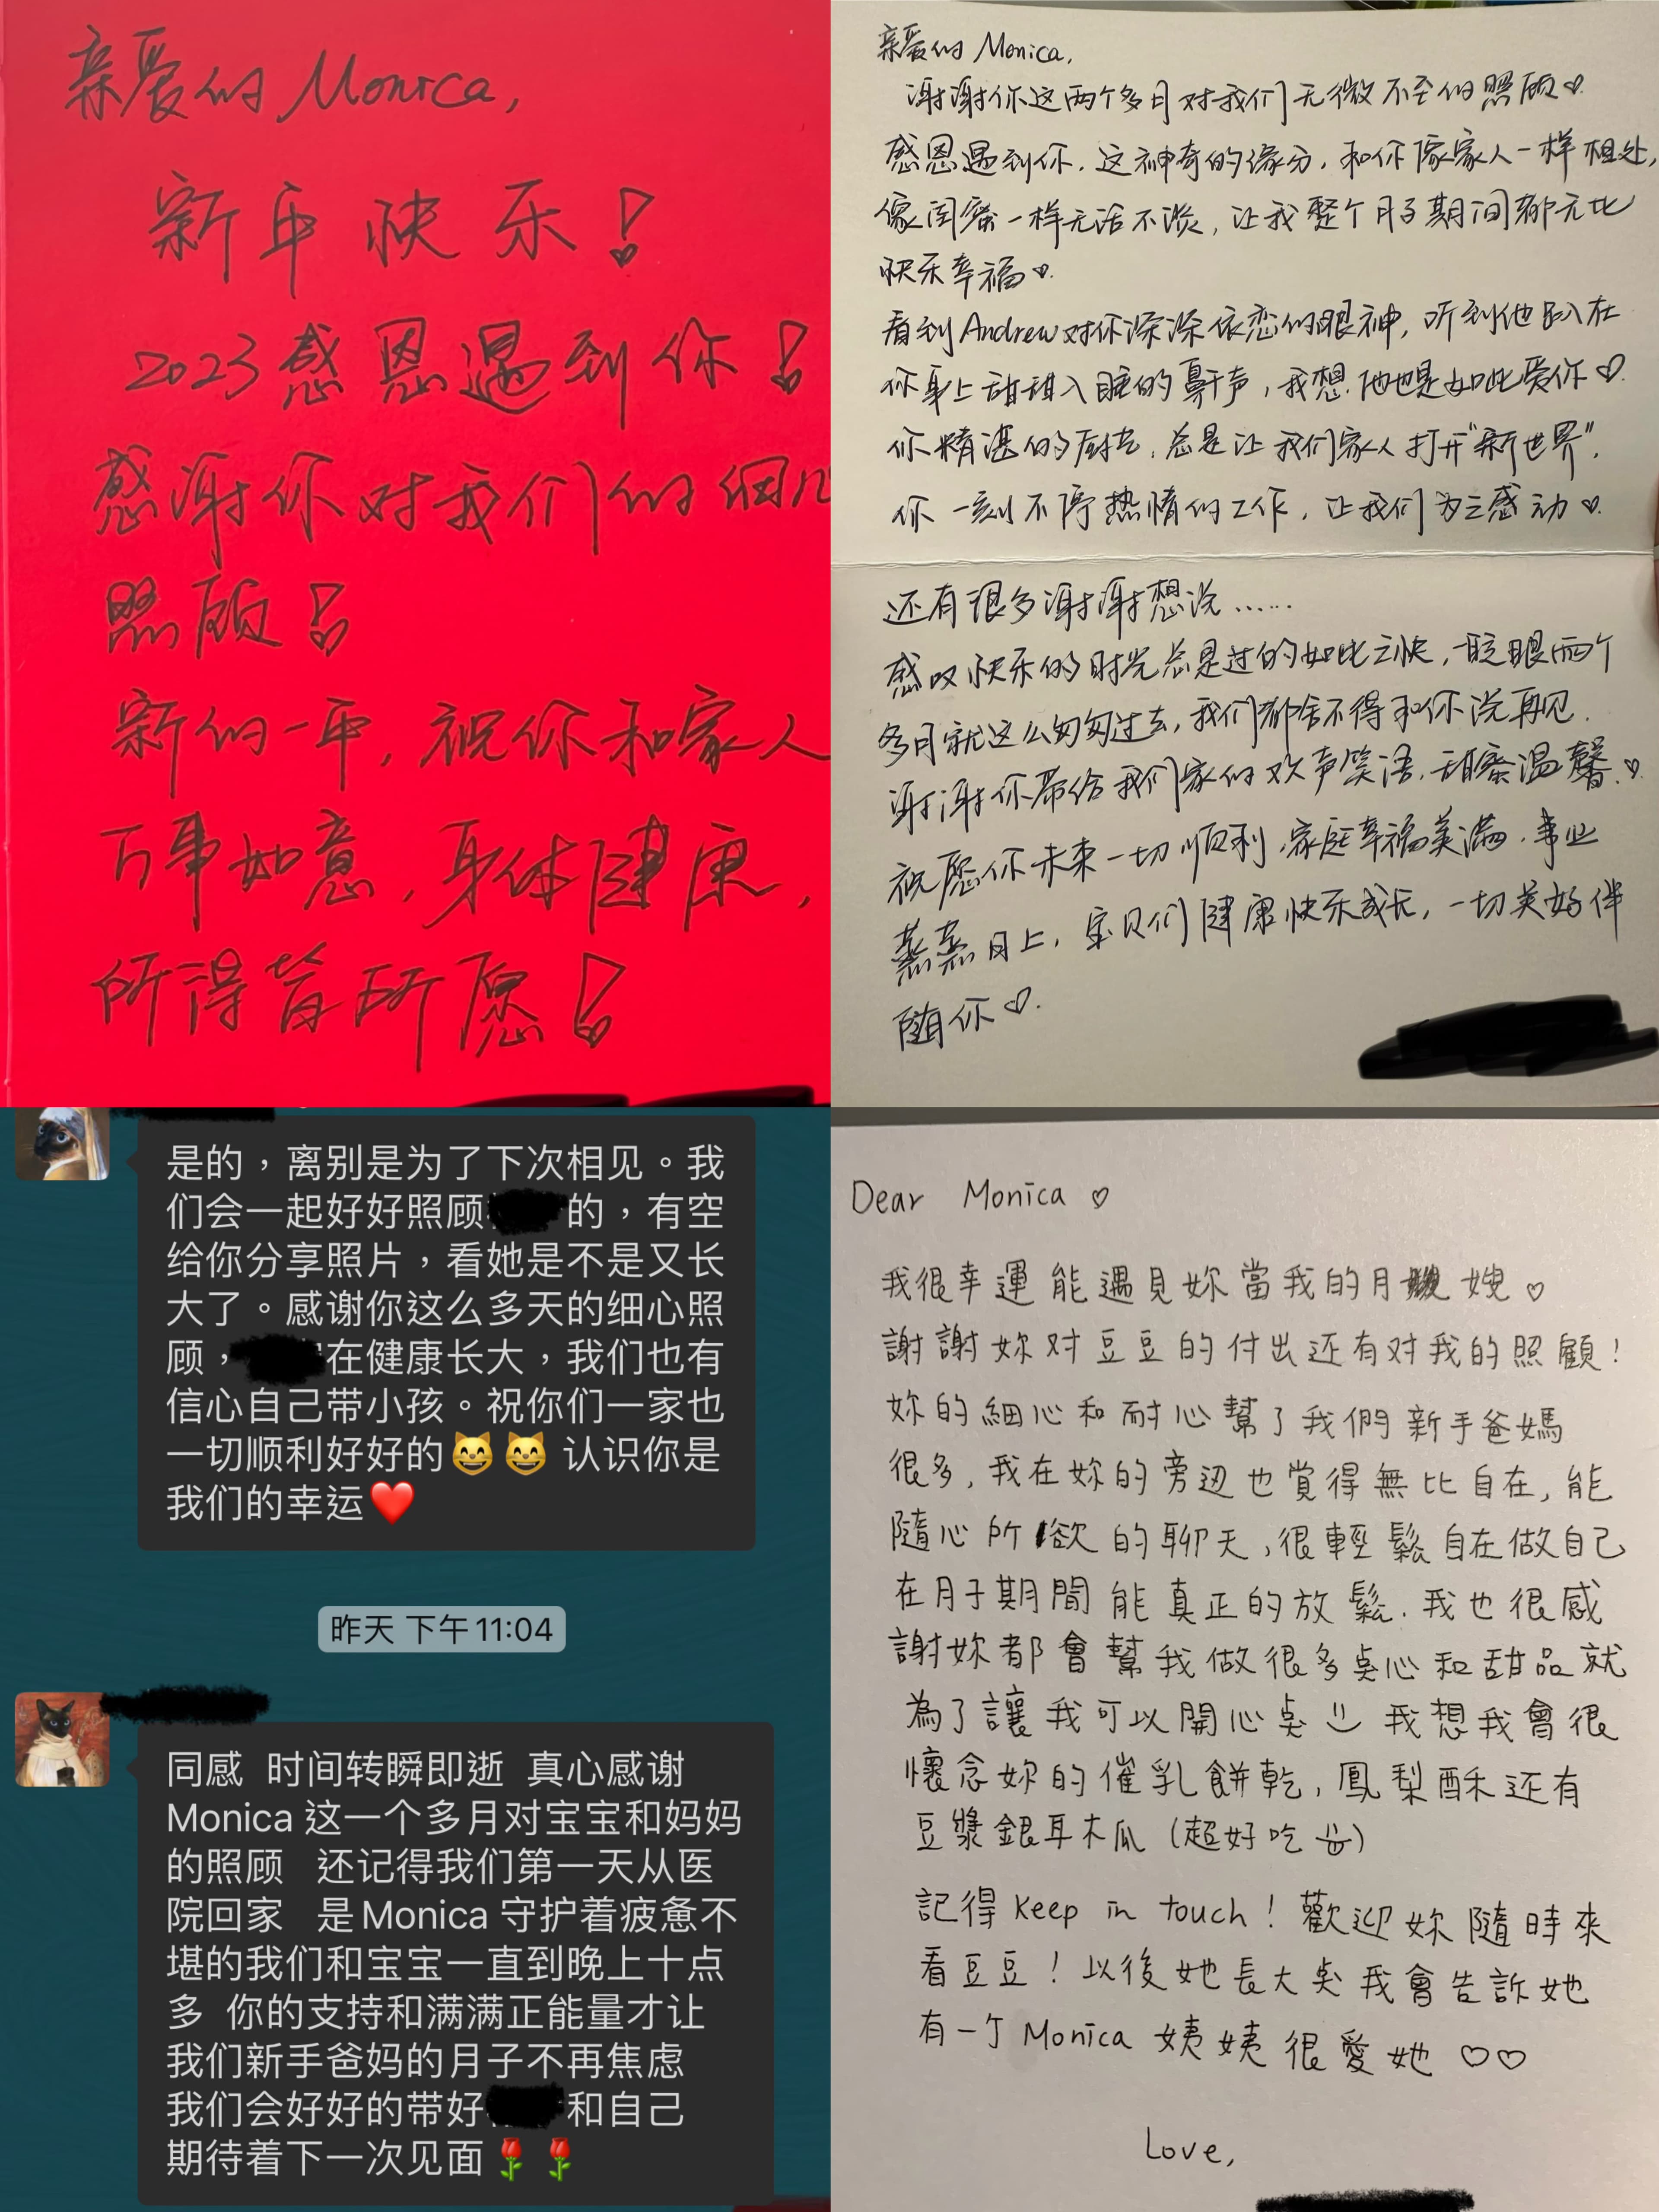 亲爱的 Monica,
新年快乐!
2023感恩遇到你!
感谢你对我们的细心
照顾!
新的一年,祝你和家人
万事如意,身体健康,
所得皆所愿!
亲爱的 Monica,
谢谢你这两个多月对我们无微不至的照顾♡.
感恩遇到你,这神奇的缘分,和你像家人一样相处,
像闺蜜一样无话不谈,让我整个月子期间都无比
快乐幸福♡.
看到Andrew对你深深依恋的眼神,听到他趴在
你身上甜甜入睡的鼾声,我想,他也是如此爱你♡.
你精湛的厨艺,总是让我们家人打开“新世界”.
你一刻不停热情的工作,让我们为之感动♡.
还有很多谢谢想说......
感叹快乐的时光总是过的如此之快,一眨眼两个
多月就这么匆匆过去,我们都舍不得和你说再见.
谢谢你带给我们家的欢声笑语,甜蜜温馨.♡.
祝愿你未来一切顺利,家庭幸福美满,事业
蒸蒸日上,宝贝们健康快乐成长,一切美好伴
随你♡.
是的，离别是为了下次相见。我
们会一起好好照顾 的，有空
给你分享照片，看她是不是又长
大了。感谢你这么多天的细心照
顾， 在健康长大，我们也有
信心自己带小孩。祝你们一家也
一切顺利好好的😸😸 认识你是
我们的幸运❤️
昨天 下午11:04
同感 时间转瞬即逝 真心感谢
Monica 这一个多月对宝宝和妈妈
的照顾 还记得我们第一天从医
院回家 是Monica 守护着疲惫不
堪的我们和宝宝一直到晚上十点
多 你的支持和满满正能量才让
我们新手爸妈的月子不再焦虑
我们会好好的带好 和自己
期待着下一次见面🌹🌹
Dear Monica ♡
我很幸運能遇見妳當我的月嫂♡
謝謝妳对豆豆的付出还有对我的照顧!
妳的細心和耐心幫了我們新手爸媽
很多,我在妳的旁辺也覚得無比自在,能
隨心所欲的聊天,很輕鬆自在做自己
在月子期間能真正的放鬆.我也很感
謝妳都會幫我做很多点心和甜品就
為了讓我可以開心点 我想我會很
懷念妳的催乳餅乾,鳳梨酥还有
豆漿銀耳木瓜(超好吃)
記得 keep in touch! 歡迎妳隨時來
看豆豆!以後她長大点我會告訴她
有一个Monica 姨姨很愛她♡♡
Love,